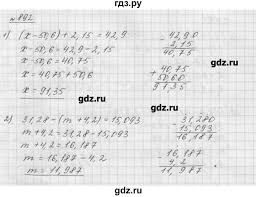 гдз.ру
№892
1) (x-50,6)+2,15=42,9
x-50,6=42,9-2,15
x-50,6=40,75
x=40,75+50,6
x=91,35
- 42,90
2,15
40,75
+ 40,75
50,60
91,35
2) 31,28-(m+4,2)=15,093
m+4,2=31,28-15,093
m+4,2=16,187
m=16,187-4,2
m=11,987
- 31,280
15,093
16,187
- 16,187
4,2
11,987
gdz.ru
gdz.ru
gdz.ru
gdz.ru